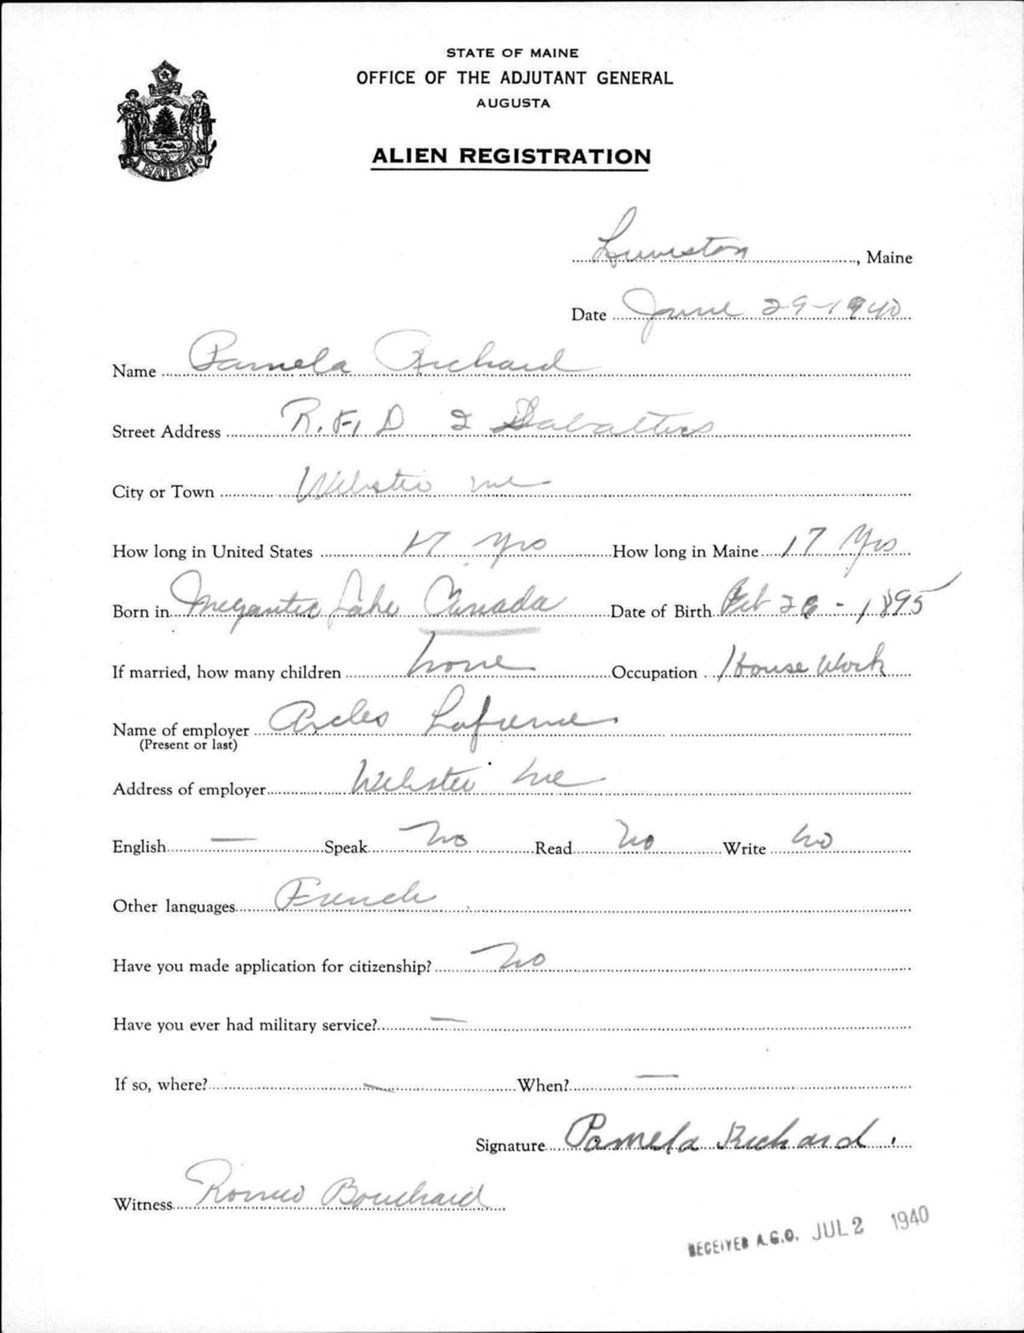 STATE OF MAINE
OFFICE OF THE ADJUTANT GENERAL
AUGUSTA
ALIEN REGISTRATION
MAINE
Lewiston, Maine
Date June 29-1940
Name Pamela Richard
Street Address R.F.D 2 Sabattus
City or Town Webster me
How long in United States 17 Yrs How long in Maine 17 Yrs
Born in Megantic Lake Canada Date of Birth 26 - 1895
If married, how many children none Occupation House Work
Name of employer
(Present or last)
Address of employer Webster Me
English — Speak No Read No Write No
Other languages French
Have you made application for citizenship? No
Have you ever had military service? —
If so, where? — When? —
Signature Pamela Richard.
Witness Romeo Bouchard
RECEIVED A.G.O. JUL 2 1940